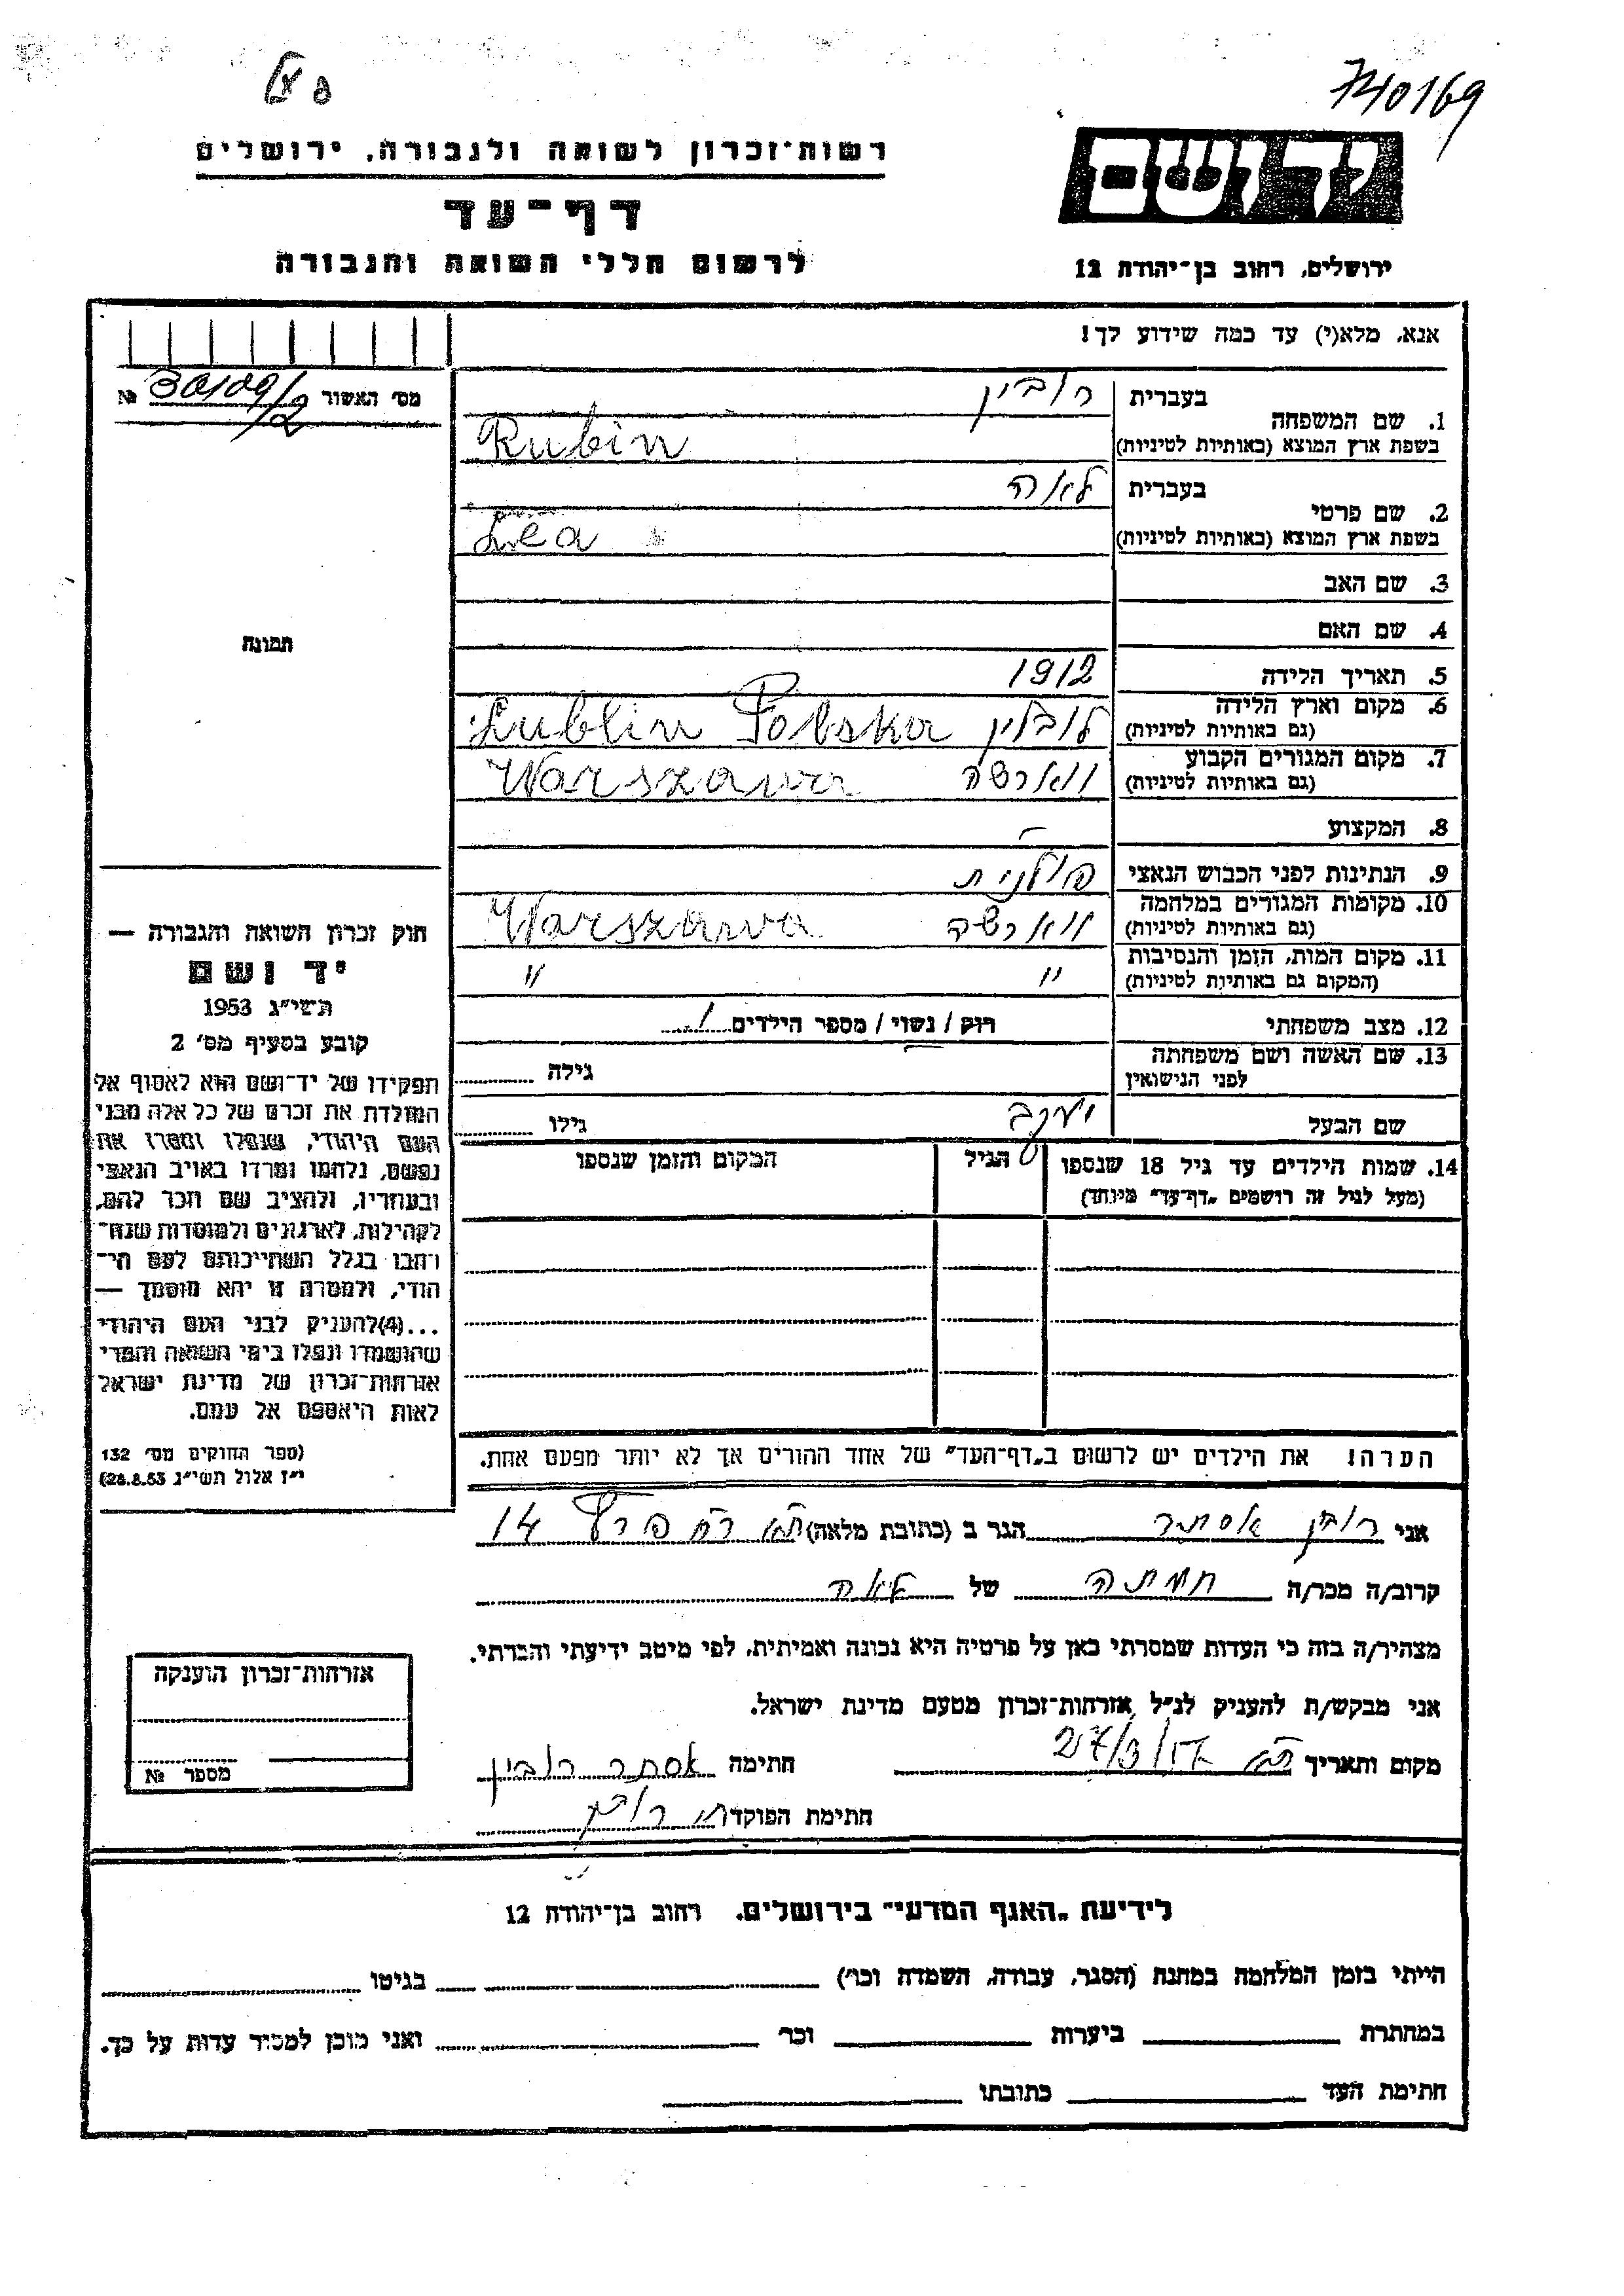 740169
רשות־זכרון לשואה ולגבורה, ירושלים
יד ושם
דף־עד
לרשום חללי השואה והגבורה
ירושלים, רחוב בן־יהודה 12
אנא, מלא(י) עד כמה שידוע לך!
מס' האשור № 30109/2
בעברית רובין
1. שם המשפחה
בשפת ארץ המוצא (באותיות לטיניות) Rubin
בעברית לאה
2. שם פרטי
בשפת ארץ המוצא (באותיות לטיניות) Lea
3. שם האב
4. שם האם
תמונה
5. תאריך הלידה 1912
6. מקום וארץ הלידה
(גם באותיות לטיניות) לובלין Lublin Polska
7. מקום המגורים הקבוע
(גם באותיות לטיניות) ווארשה Warszawa
8. המקצוע –
9. הנתינות לפני הכבוש הנאצי פולנית
10. מקומות המגורים במלחמה
(גם באותיות לטיניות) ווארשה Warszawa
11. מקום המות, הזמן והנסיבות
(המקום גם באותיות לטיניות) " "
12. מצב משפחתי רוק / נשוי / מספר הילדים 1
13. שם האשה ושם משפחתה
לפני הנישואין גילה
שם הבעל יעקב גילו
14. שמות הילדים עד גיל 18 שנספו הגיל המקום והזמן שנספו
(מעל לגיל זה רושמים "דף־עד" מיוחד)
חוק זכרון השואה והגבורה —
יד ושם
תשי"ג 1953
קובע בסעיף מס' 2
תפקידו של יד־ושם הוא לאסוף אל
המולדת את זכרם של כל אלה מבני
העם היהודי, שנפלו ומסרו את
נפשם, נלחמו ומרדו באויב הנאצי
ובעוזריו, ולהציב שם וזכר להם,
לקהילות, לארגונים ולמוסדות שנח־
רחבו בגלל השתייכותם לעם הי־
הודי, ולמטרה זו יהא מוסמך —
...(4)להעניק לבני העם היהודי
שהושמדו ונפלו בימי השואה והמרי
אזרחות־זכרון של מדינת ישראל
לאות היאספם אל עמם.
(ספר החוקים מס' 132
י"ז אלול תשי"ג 28.8.53)
הערה! את הילדים יש לרשום ב"דף־העד" של אחד ההורים אך לא יותר מפעם אחת.
אני רובין אסתר הגר ב (כתובת מלאה) ת"א רח פרץ 14
קרוב/ה מכר/ה חמתה של לאה
מצהיר/ה בזה כי העדות שמסרתי כאן על פרטיה היא נכונה ואמיתית, לפי מיטב ידיעתי והכרתי.
אני מבקש/ת להעניק לנ"ל אזרחות־זכרון מטעם מדינת ישראל.
מקום ותאריך ת"א חתימה אסתר רובין
חתימת הפוקד
אזרחות־זכרון הוענקה
מספר №
לידיעת "האגף המדעי" בירושלים, רחוב בן־יהודה 12
הייתי בזמן המלחמה במחנה (הסגר, עבודה, השמדה וכו') בגיטו
במחתרת ביערות וכו' ואני מוכן למסיר עדות על כך.
חתימת העד כתובתו